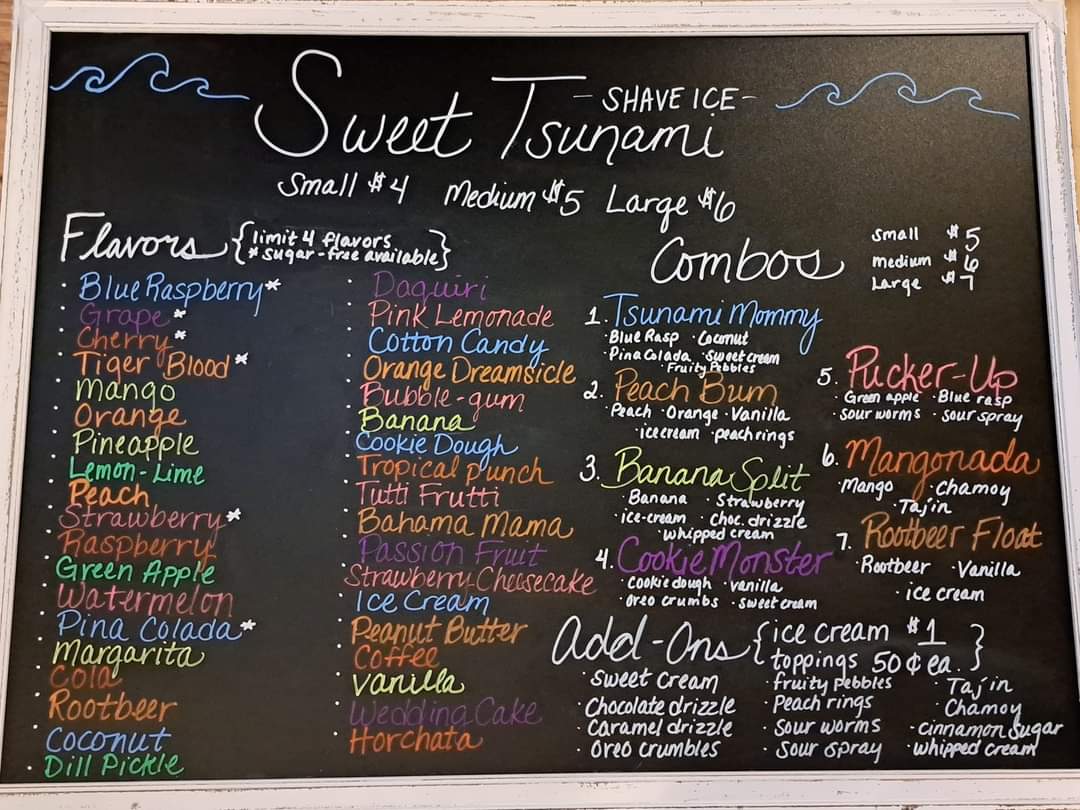 - SHAVE ICE -
Sweet Tsunami
Small $4 Medium $5 Large $6
Flavors {limit 4 flavors
* sugar-free available}
· Blue Raspberry*
· Grape *
· Cherry*
· Tiger Blood *
· Mango
· Orange
· Pineapple
· Lemon-Lime
· Peach
· Strawberry*
· Raspberry
· Green Apple
· Watermelon
· Pina Colada*
· Margarita
· Cola
· Rootbeer
· Coconut
· Dill Pickle
· Daquiri
· Pink Lemonade
· Cotton Candy
· Orange Dreamsicle
· Bubble-gum
· Banana
· Cookie Dough
· Tropical punch
· Tutti Frutti
· Bahama Mama
· Passion Fruit
· Strawberry Cheesecake
· Ice Cream
· Peanut Butter
· Coffee
· Vanilla
· Wedding Cake
· Horchata
Combos
Small $5
medium $6
Large $7
1. Tsunami Mommy
· Blue Rasp · Coconut
· Pina Colada · Sweet cream
· Fruity Pebbles
2. Peach Bum
· Peach · Orange · Vanilla
· ice cream · peach rings
3. Banana Split
· Banana · Strawberry
· ice-cream · choc. drizzle
· whipped cream
4. Cookie Monster
· Cookie dough · vanilla
· oreo crumbs · sweet cream
5. Pucker-Up
· Green apple · Blue rasp
· sour worms · sour spray
6. Mangonada
· Mango · Chamoy
· Tajin
7. Rootbeer Float
· Rootbeer · Vanilla
· ice cream
Add-Ons {ice cream $1
toppings 50¢ ea.}
· sweet cream
· Chocolate drizzle
· Caramel drizzle
· oreo crumbles
· fruity pebbles
· Peach rings
· Sour worms
· Sour spray
· Tajin
· Chamoy
· cinnamon sugar
· whipped cream